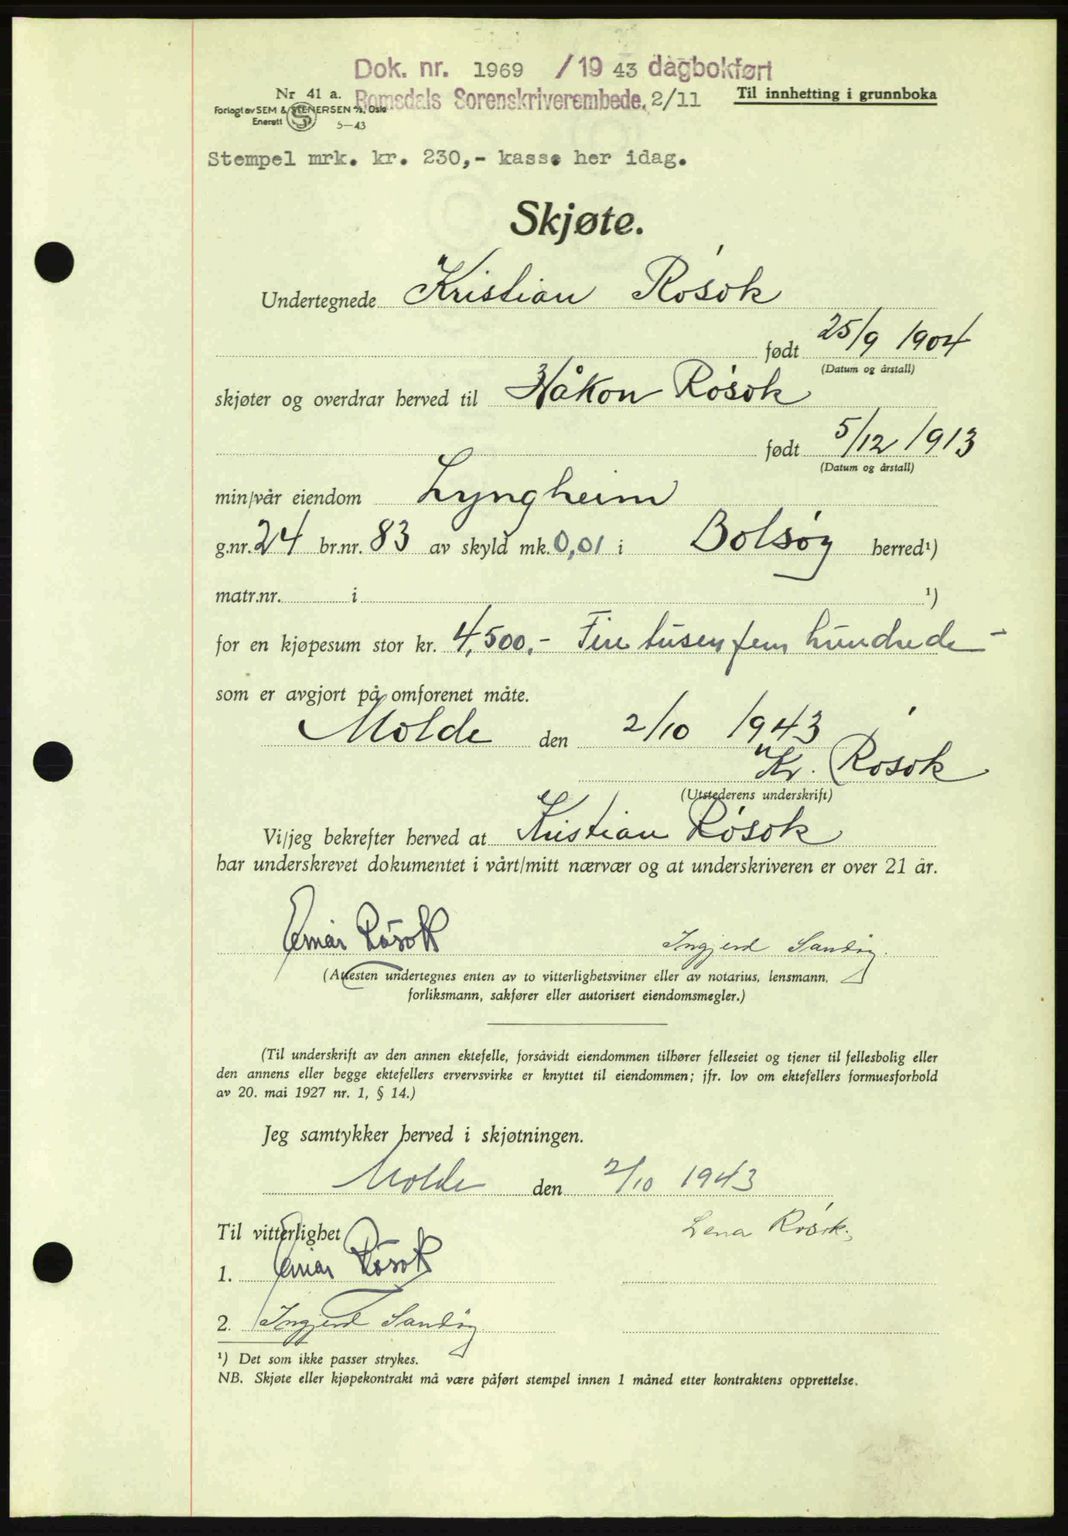 Dok. nr. 1969 /19 43 dagbokført
Nr 41 a. Romsdals Sorenskriverembede. 2/11 Til innhetting i grunnboka
Forlagt av SEM & STENERSEN A/S, Oslo
Enerett 5-43
Stempel mrk. kr. 230,- kasse her idag.
Skjøte.
Undertegnede Kristian Rösok
født 25/9 1904
(Datum og årstall)
skjøter og overdrar herved til Håkon Rösok
født 5/12 1913
(Datum og årstall)
min/vår eiendom Lyngheim
g.nr. 24 br.nr. 83 av skyld mk. 0,01 i Bolsøy herred¹)
matr.nr. i ¹)
for en kjøpesum stor kr. 4,500,- Fire tusen fem hundrede -
som er avgjort på omforenet måte.
Molde den 2/10 1943
Kr. Rösok
(Utstederens underskrift)
Vi/jeg bekrefter herved at Kristian Rösok
har underskrevet dokumentet i vårt/mitt nærvær og at underskriveren er over 21 år.
Einar Rösok Ingjerd Sandøy.
(Attesten undertegnes enten av to vitterlighetsvitner eller av notarius, lensmann,
forliksmann, sakfører eller autorisert eiendomsmegler.)
(Til underskrift av den annen ektefelle, forsåvidt eiendommen tilhører felleseiet og tjener til fellesbolig eller
den annens eller begge ektefellers ervervsvirke er knyttet til eiendommen; jfr. lov om ektefellers formuesforhold
av 20. mai 1927 nr. 1, § 14.)
Jeg samtykker herved i skjøtningen.
Molde den 2/10 1943
Til vitterlighet Lena Rösok.
1. Einar Rösok
2. Ingjerd Sandøy
¹) Det som ikke passer strykes.
NB. Skjøte eller kjøpekontrakt må være påført stempel innen 1 måned etter kontraktens opprettelse.